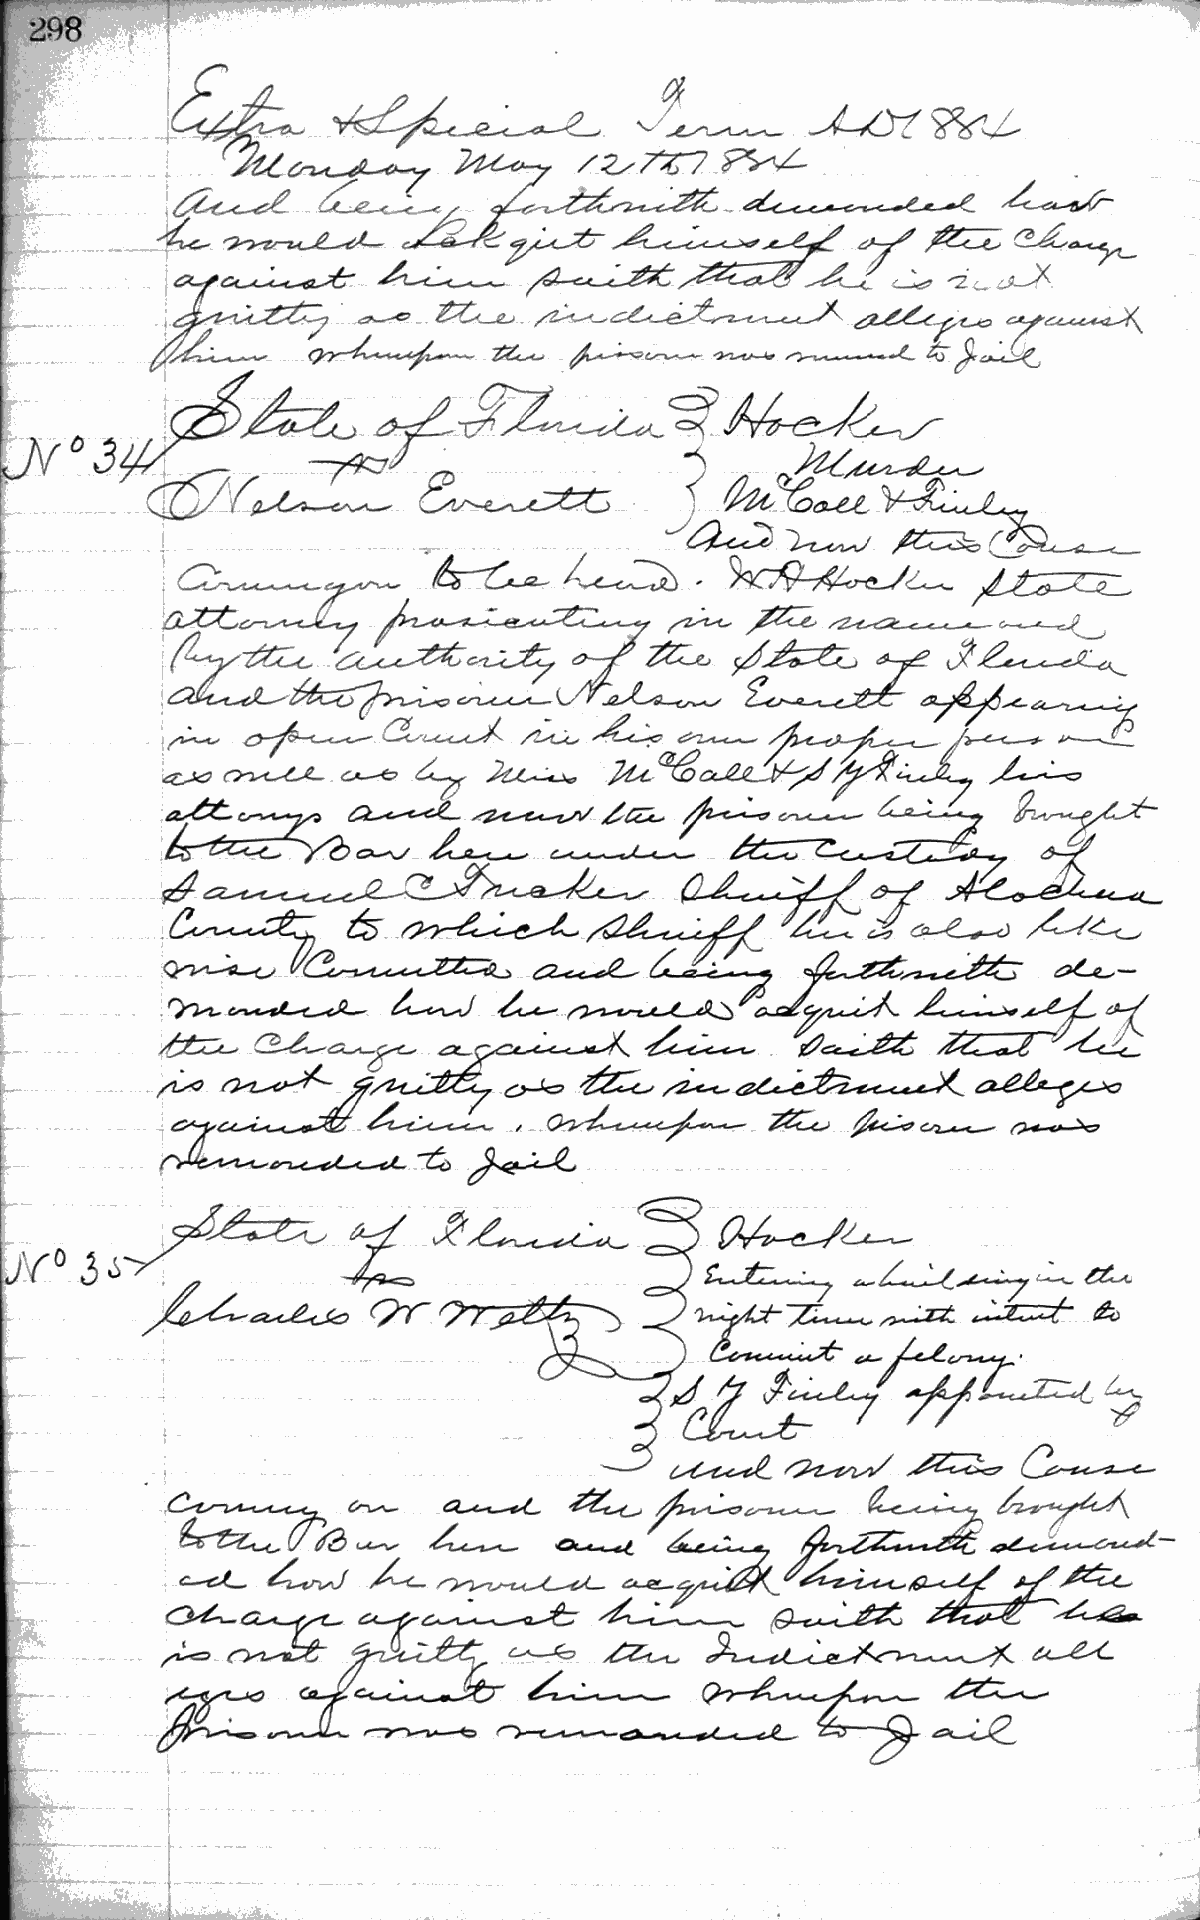 298
Extra & Special Term AD 1884
Monday May 12th 1884
And being forthwith demanded how
he would ackquit himself of the Charge
against him saith that he is not
guilty as the indictment alleges against
him whereupon the prisoner was remand to Jail
State of Florida Hocker
No 34 vs Murder
Nelson Everett McCall & Finley
And now this Cause
Comingon to be heard. W A Hocker State
attorney prosicuting in the name and
by the authority of the State of Florida
and the prisoner Nelson Everett appearing
in open Court in his own proper person
as well as by McCall & S Y Finley his
attorneys and now the prisoner being brought
to the Bar here under the Custody of
Samuel C Tucker Sheriff of Alachua
County to which Sheriff he is also like
wise Committed and being forthwith de-
manded how he would acquit himself of
the Charge against him Saith that he
is not guilty as the indictment alleges
against him. whereupon the prisoner was
remanded to Jail
State of Florida Hocker
No 35 vs Entering a building in the
Charles W night time with intent to
Commit a felony.
S Y Finley appointed by
Court
And now this Cause
coming on and the prisoner being brought
to the Bar here and being forthwith demand-
ed how he would acquit himself of the
Charge against him saith that he
is not guilty as the Indictment all
eges against him whereupon the
Prisoner was remanded to Jail